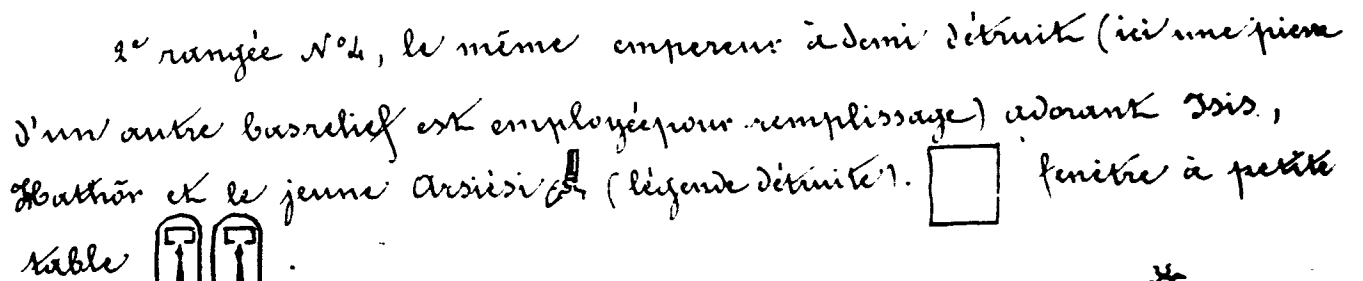 2e rangée N°4, le même empereur à demi détruit (ici une pierre
d'un autre basrelief est employée pour remplissage) adorant Isis,
Hathôr et le jeune Arsiési (légende détruite). fenêtre à petite
table .